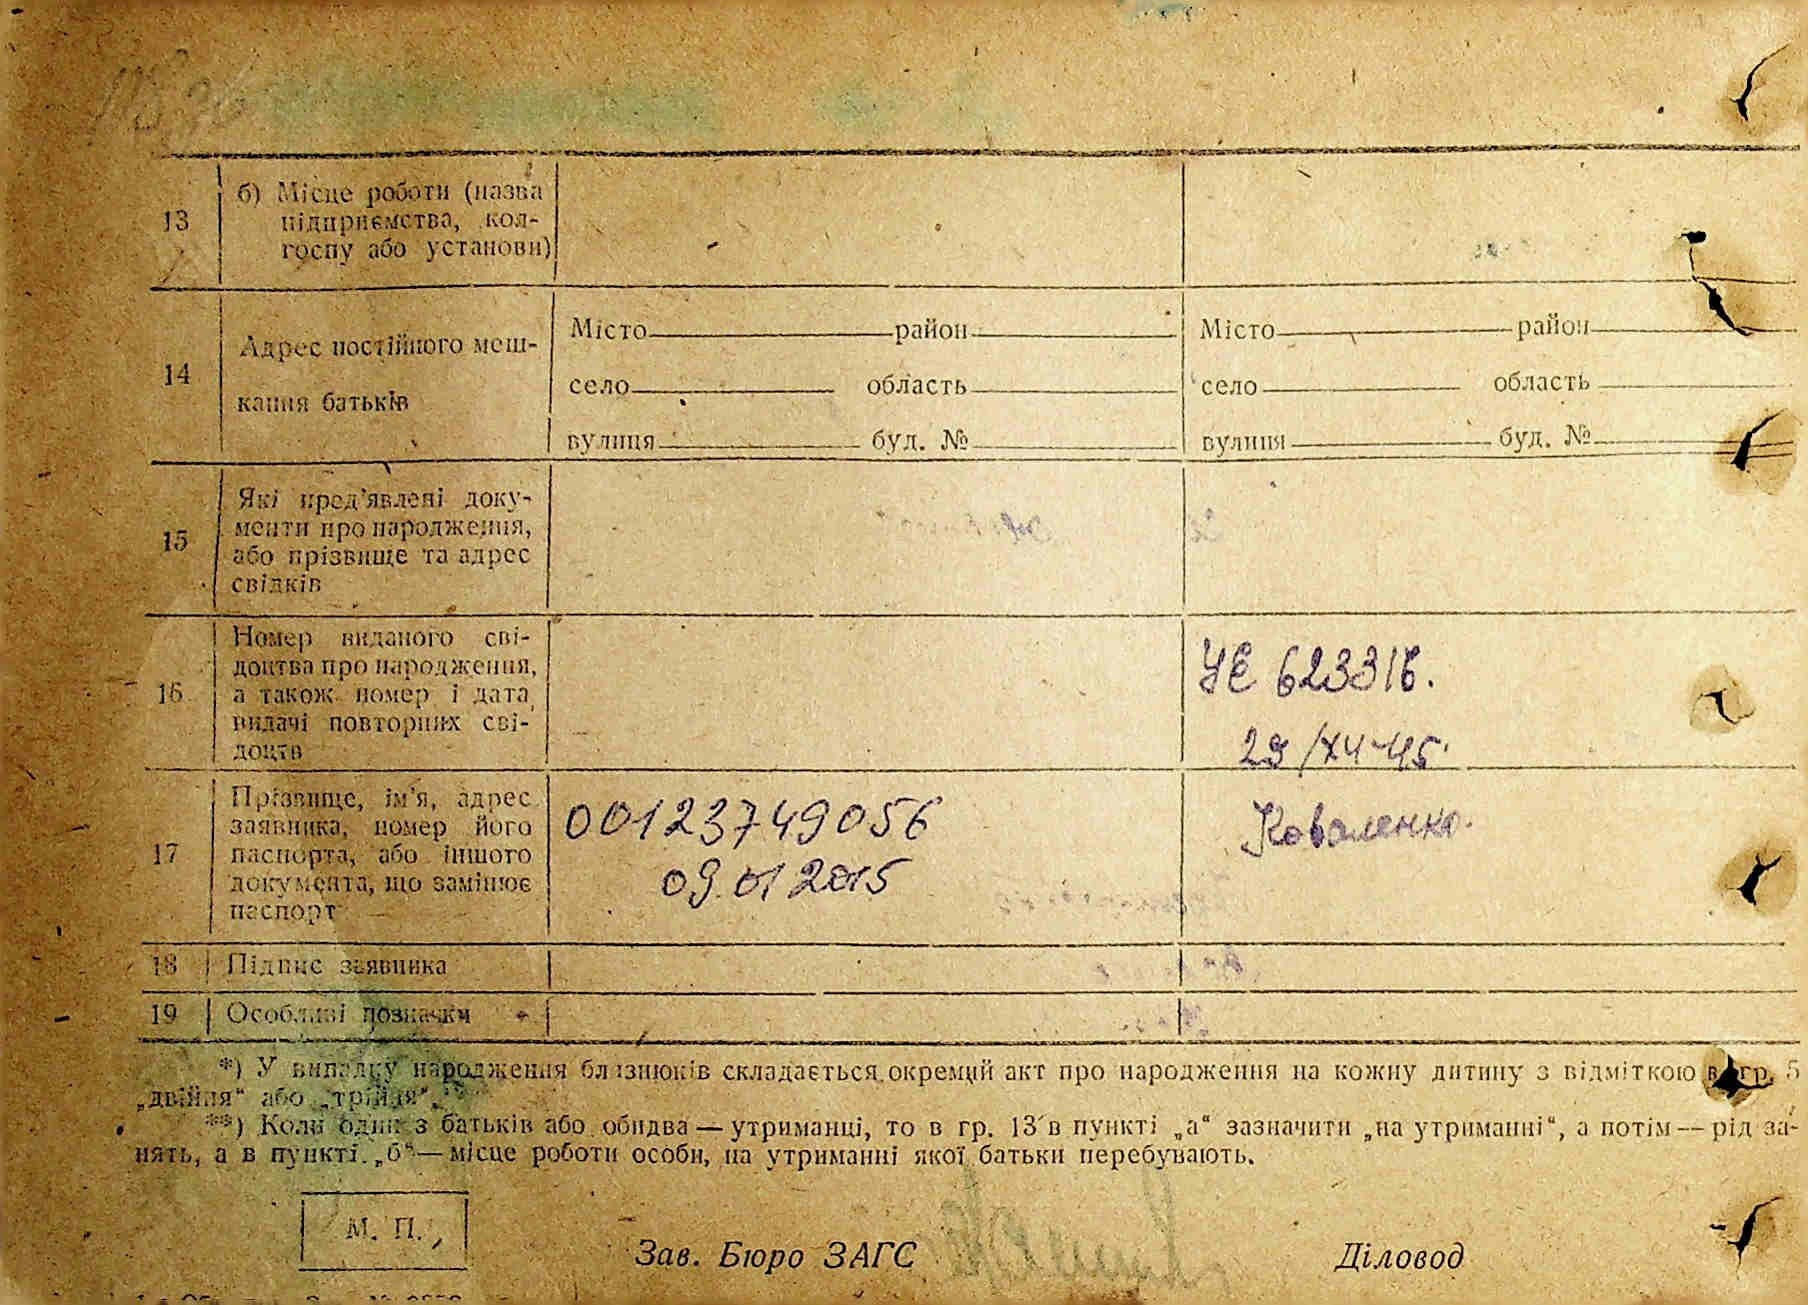 13
б) Місце роботи (назва
підприємства, кол-
госпу або установи)
14
Адрес постійного меш-
кання батьків
Місто район
село область
вулиця буд. №
Місто район
село область
вулиця буд. №
15
Які пред’явлені доку-
менти про народження,
або прізвище та адрес
свідків
16
Номер виданого сві-
доцтва про народження,
а також номер і дата
видачі повторних сві-
доцтв
УЕ 623316.
29/ХІІ-45.
17
Прізвище, ім’я, адрес
заявника, номер його
паспорта, або іншого
документа, що замінює
паспорт
00123749056
09.01 2015
Коваленко.
18
Підпис заявника
19
Особливі позначки
*) У випадку народження близнюків складається окремий акт про народження на кожну дитину з відміткою в гр. 5
„двійня“ або „трійня“.
**) Коли один з батьків або обидва — утриманці, то в гр. 13 в пункті „а“ зазначити „на утриманні“, а потім — рід за-
нять, а в пункті „б“ — місце роботи особи, на утриманні якої батьки перебувають.
М. П.
Зав. Бюро ЗАГС
Діловод